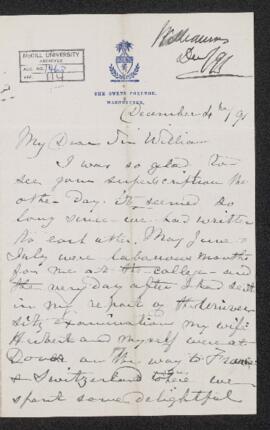 McGILL UNIVERSITY
ARCHIVES
ACC. NO. 1463
REF. 114
Williamson
Dec 4/91
THE OWENS COLLEGE,
MANCHESTER.
December 4th/91
My Dear Sir William
I was so glad to
see your superscription the
other day. it seemed so
long since we had written
to each other. May June &
July were laborious months
for me at the college - and
the very day after I had sent
in my report of the Univer
sity Examinations my wife
Hubert and myself were at
Dover on the way to France
& Switzerland where we
spent some delightful